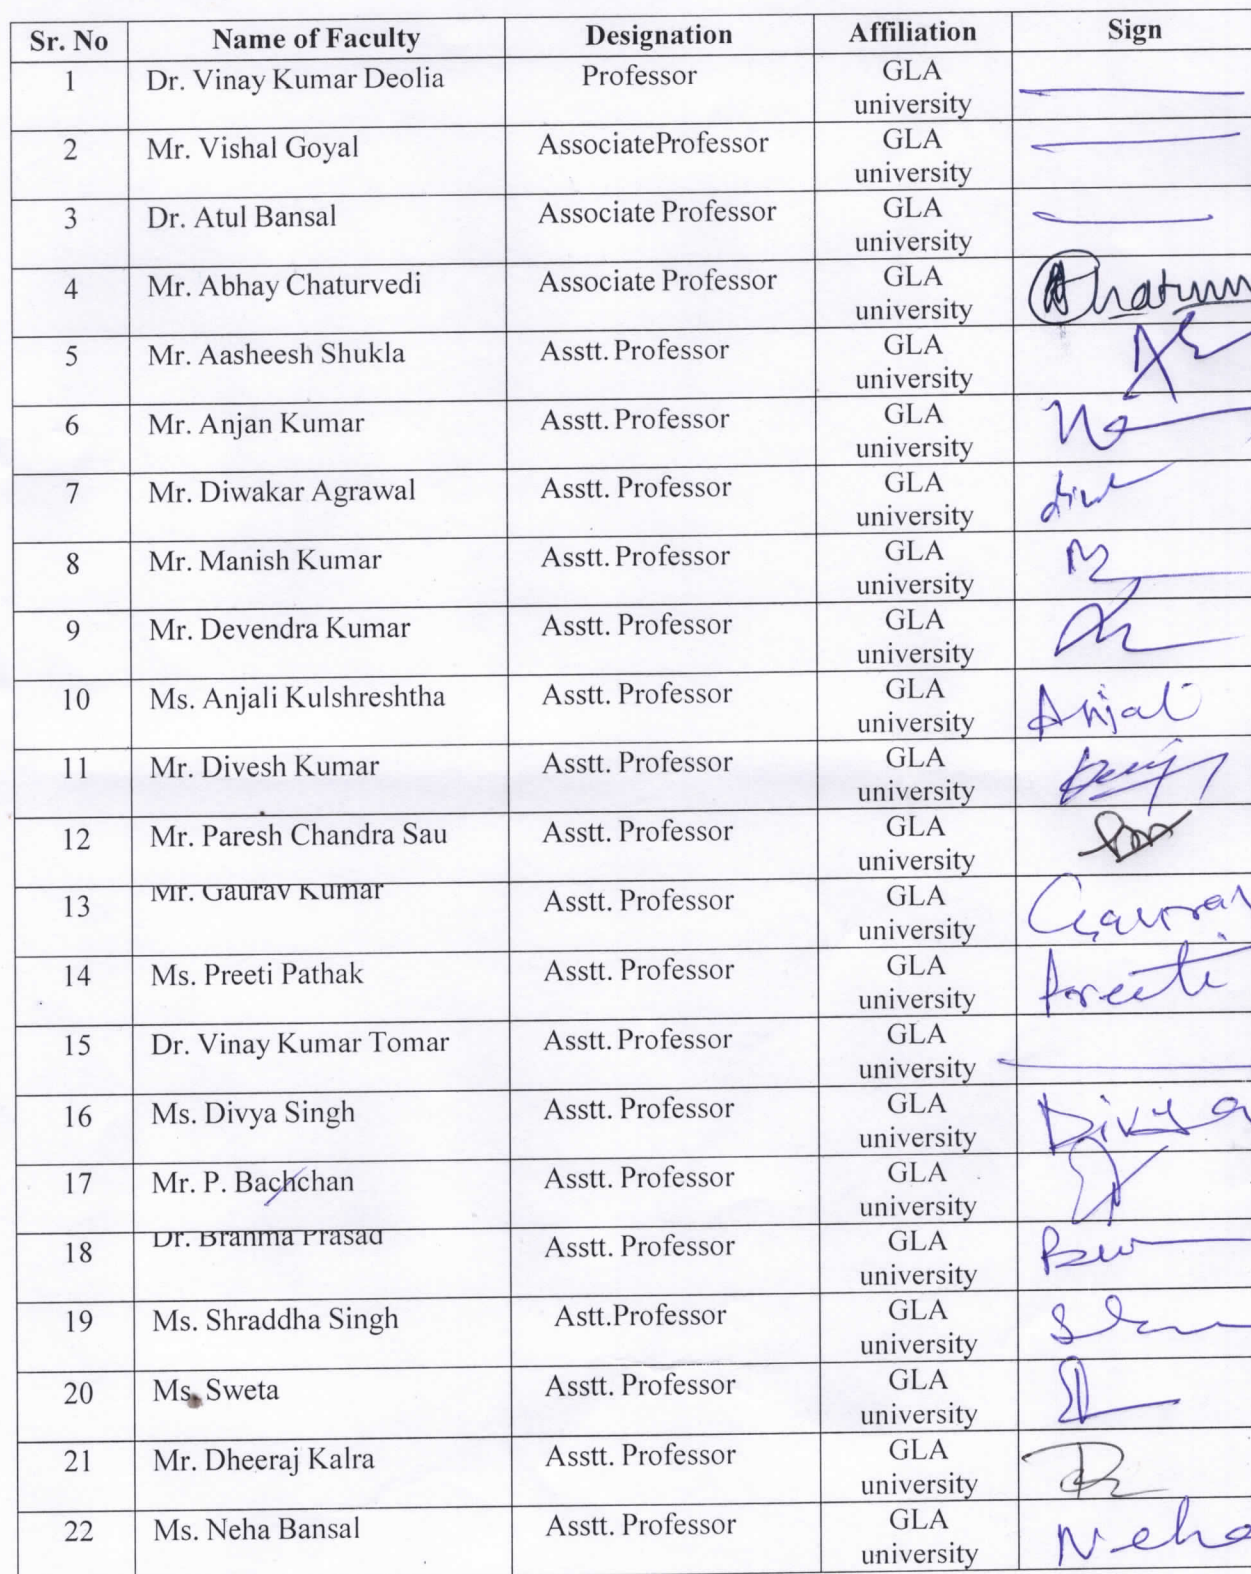 Sr. No Name of Faculty Designation Affiliation Sign
1 Dr. Vinay Kumar Deolia Professor GLA
university
2 Mr. Vishal Goyal AssociateProfessor GLA
university
3 Dr. Atul Bansal Associate Professor GLA
university
4 Mr. Abhay Chaturvedi Associate Professor GLA
university
5 Mr. Aasheesh Shukla Asstt. Professor GLA
university
6 Mr. Anjan Kumar Asstt. Professor GLA
university
7 Mr. Diwakar Agrawal Asstt. Professor GLA
university
8 Mr. Manish Kumar Asstt. Professor GLA
university
9 Mr. Devendra Kumar Asstt. Professor GLA
university
10 Ms. Anjali Kulshreshtha Asstt. Professor GLA Anjali
university
11 Mr. Divesh Kumar Asstt. Professor GLA
university
12 Mr. Paresh Chandra Sau Asstt. Professor GLA
university
13 Mr. Gaurav Kumar Asstt. Professor GLA Gaurav
university
14 Ms. Preeti Pathak Asstt. Professor GLA Preeti
university
15 Dr. Vinay Kumar Tomar Asstt. Professor GLA
university
16 Ms. Divya Singh Asstt. Professor GLA Divya
university
17 Mr. P. Bachchan Asstt. Professor GLA
university
18 Dr. Brahma Prasad Asstt. Professor GLA
university
19 Ms. Shraddha Singh Astt.Professor GLA
university
20 Ms. Sweta Asstt. Professor GLA
university
21 Mr. Dheeraj Kalra Asstt. Professor GLA
university
22 Ms. Neha Bansal Asstt. Professor GLA Neha
university